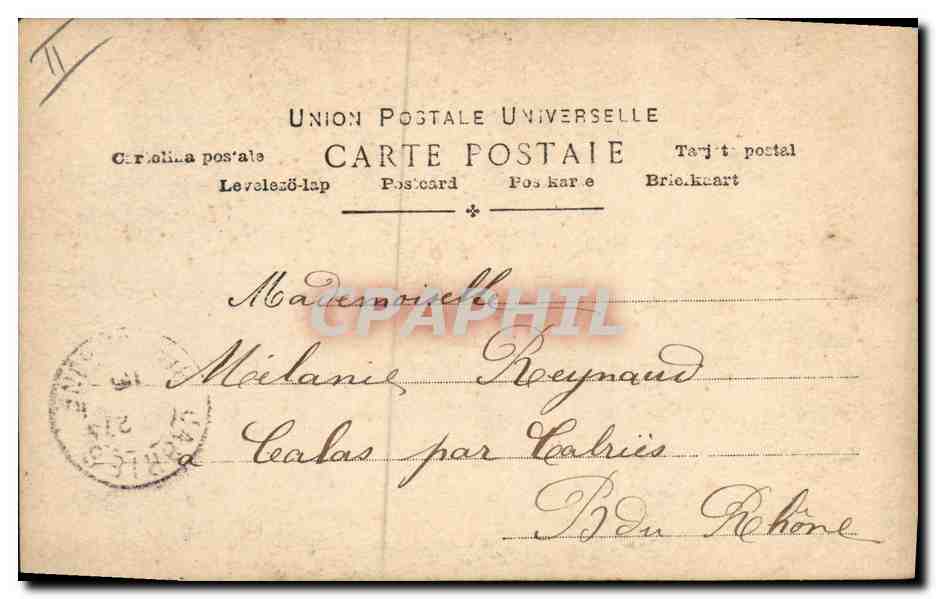 II
UNION POSTALE UNIVERSELLE
Cartolina postale CARTE POSTALE Tarjeta postal
Levelezö-lap Postcard Postkarte Briefkaart
Mademoiselle
CPAPHIL
Mélanie Reynaud
à Calas par Cabriès
B du Rhône